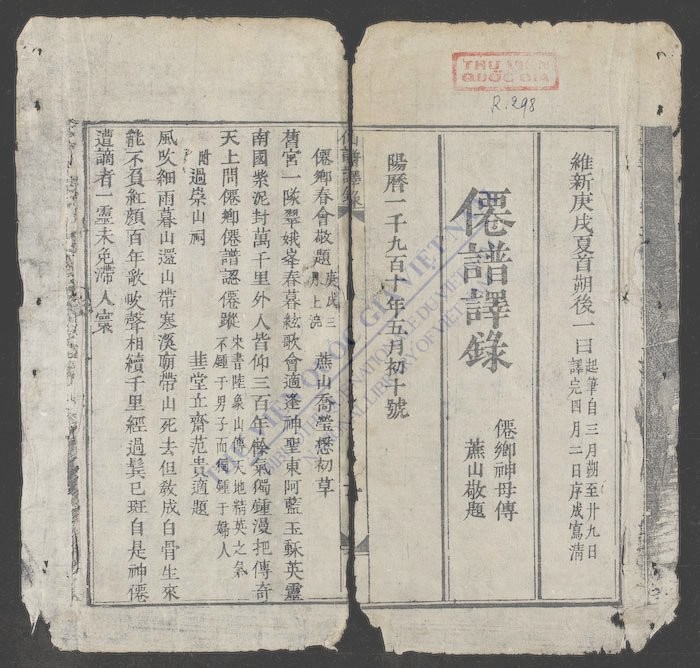 THƯ VIỆN
QUỐC GIA
R.298
維新庚戌夏首朔後一日起筆自三月朔至卄九日譯完四月二日序成寫清
僊譜譯錄
僊鄉神母傳
蕉山敬題
陽曆一千九百十年五月初十號
仙譜譯錄
僊鄉春會敬題庚戌三月上浣 蕉山喬瑩懋初草
舊宮一隊翠娥峯春暮絃歌會適逢神聖東阿藍玉穌英靈
南國紫泥封萬千里外人皆仰三百年餘氣獨鍾漫把傳奇
天上問僊鄉僊譜認僊蹤宋書陸象山傳天地精英之氣不鍾于男子而獨鍾于婦人
附過崇山祠 圭堂立齋范貴適題
風吹細雨暮山還山帶寒溪廟帶山死去但教成白骨生來
能不負紅顏百年歌吹聲相續千里經過鬂已斑自是神僊
遭謫者一靈未免滯人寰
THƯ VIỆN QUỐC GIA VIỆT NAM
BIBLIOTHÈQUE NATIONALE DU VIETNAM
NATIONAL LIBRARY OF VIETNAM